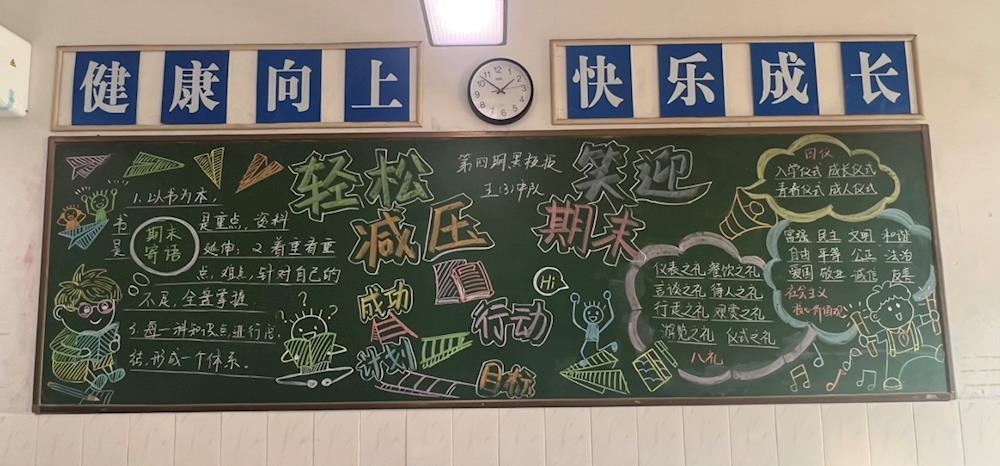 健康向上
快乐成长
轻松
减压
第四期黑板报
五(3)中队
笑迎
期末
期末
寄语
1.以书为本，
书是重点，资料
是延伸；2.着重看重
点，难点，针对自己的
不足，全盘掌握
3.每一科知识点进行总
结，形成一个体系。
成功
计划
行动
目标
Hi
四仪
入学仪式 成长仪式
青春仪式 成人仪式
仪表之礼 餐饮之礼
言谈之礼 待人之礼
行走之礼 观赏之礼
游览之礼 仪式之礼
八礼
富强 民主 文明 和谐
自由 平等 公正 法治
爱国 敬业 诚信 友善
社会主义
核心价值观